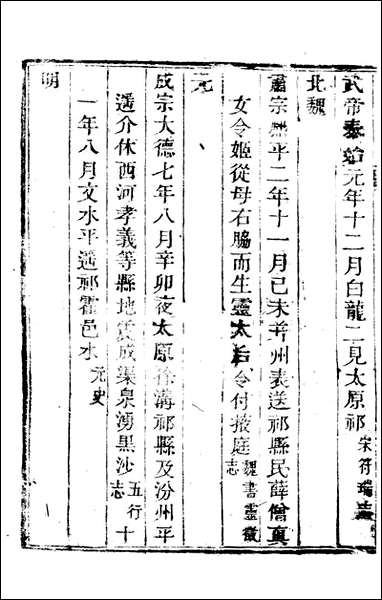 武帝泰始元年十二月白龍二見太原祁宋符瑞志
北魏
肅宗熙平二年十一月己未并州表送祁縣民薛僧真
女令姬從母右脇而生靈太后令付掖庭魏書靈徵志
元
成宗大德七年八月辛卯夜太原徐溝祁縣及汾州平
遥介休西河孝義等縣地震成渠泉湧黑沙五行志十
一年八月文水平遥祁霍邑水元史
明